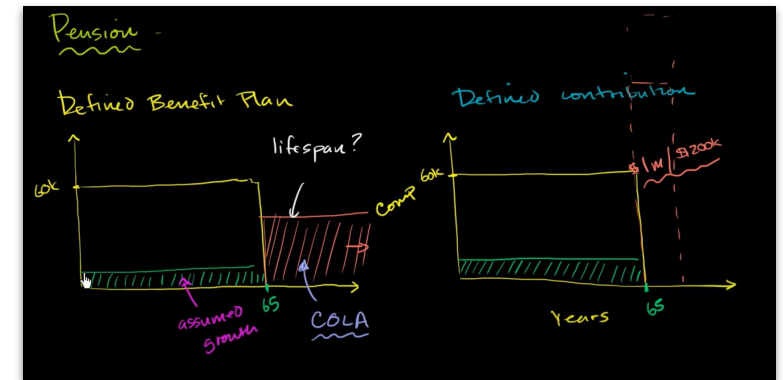 Pension -
Defined Benefit Plan
lifespan?
60k
Comp
65
assumed
growth
COLA
Defined contribution
60k
$1M/$200k
65
Years